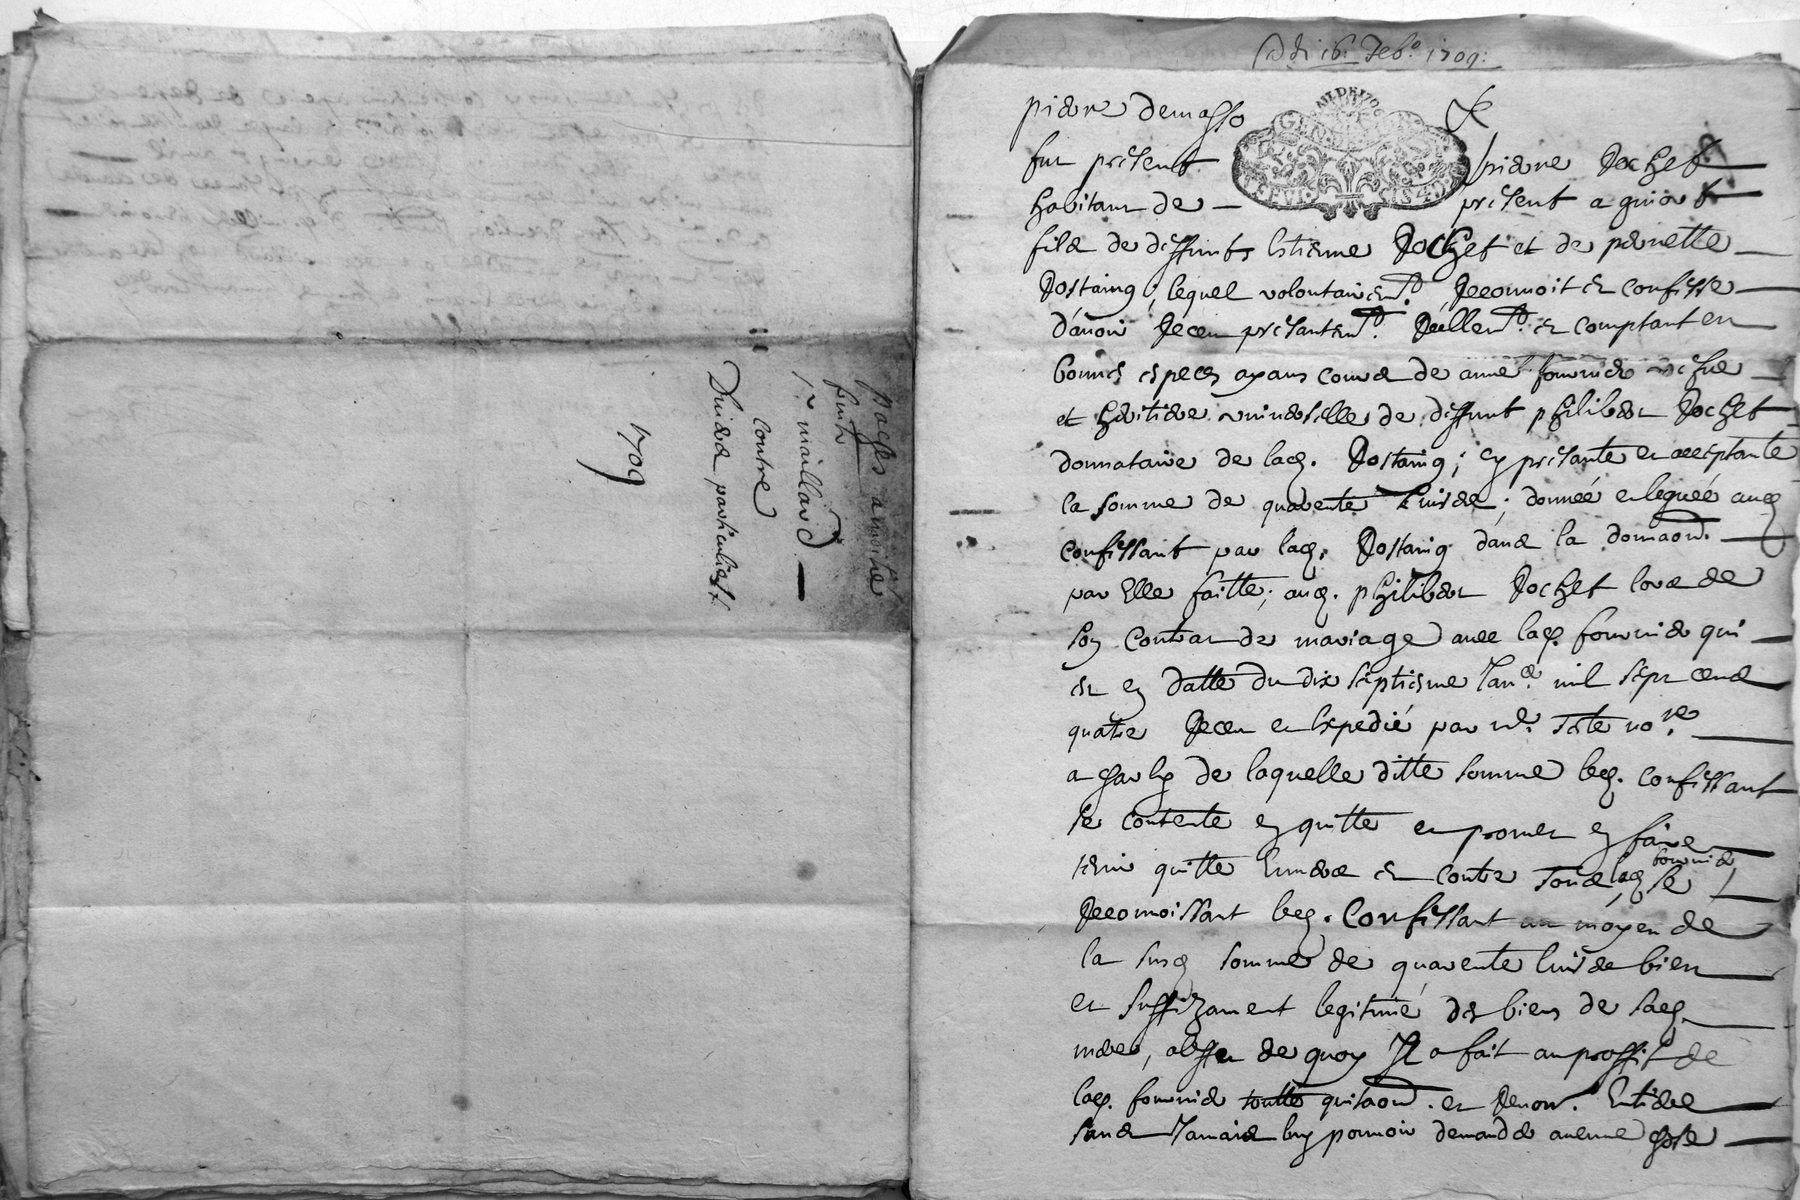 pages a moitié
finir
mailland
contre
Divers particuliers
1709
1709:
pierre demasso
GEN
fut présent pierre Rochet
habitant de présent a
fils de deffunts Estienne Rochet et de pernette
Rostaing, lequel volontairem.t Reconnoit et confesse
d'auoir Receu présantem.t Réellem.t et comptant en
bonnes especes ayans cours de anne fournier vefue
et héritiere vniuerselle de deffunt philiber Rochet
donnataire de lad. Rostaing; cy présante et acceptante
la somme de quarente liures; donnée et leguée aud
confessant par lad. Rostaing dans la donnaon.
par Elle faitte; aud. philiber Rochet lors de
son Contrat de mariage auec lad. fournier qui
est en datte du dix septiesme Jan.er mil sept cens
quatre Receu et Expedié par m.e no.re
a de laquelle ditte somme led. confessant
se contente en quitte et promet en faire
tenir quitte Enuers et contre tous lad fournier se
Reconnoissant led. Confessant au moyen de
la susd somme de quarente liures bien
et suffizament legitimé des biens de sad.
mere, de quoy Il a fait au proffit de
lad. fournier toutte quitaon. et Renon. Entiere
sans Jamais luy pouuoir demander aucune chose